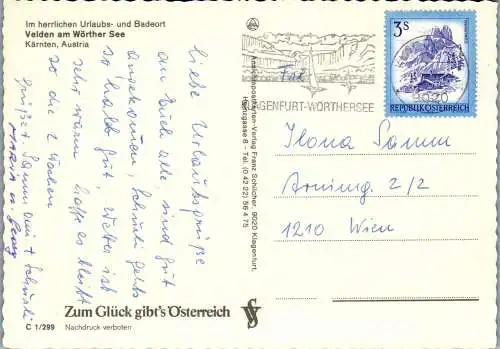 Im herrlichen Urlaubs- und Badeort
Velden am Wörther See
Kärnten, Austria
liebe Urlaubsgrüße
an Euch alle, sind gut
angekommen, Schnuki gehts
so halbt gut, Wetter ist
sehr warm, hoffe es bleibt
so die 2 Wochen
Grüße + Schnuki
C 1/299
Zum Glück gibt's Österreich
Nachdruck verboten
Ansichtspostkarten-Verlag Franz Schilcher, 9020 Klagenfurt,
Hertagasse 8 - Tel. (0 42 22) 56 4 75
KLAGENFURT-WÖRTHERSEE
Für
3S
9020
REPUBLIK ÖSTERREICH
Ilona Samm
Arming. 2/2
1210 Wien